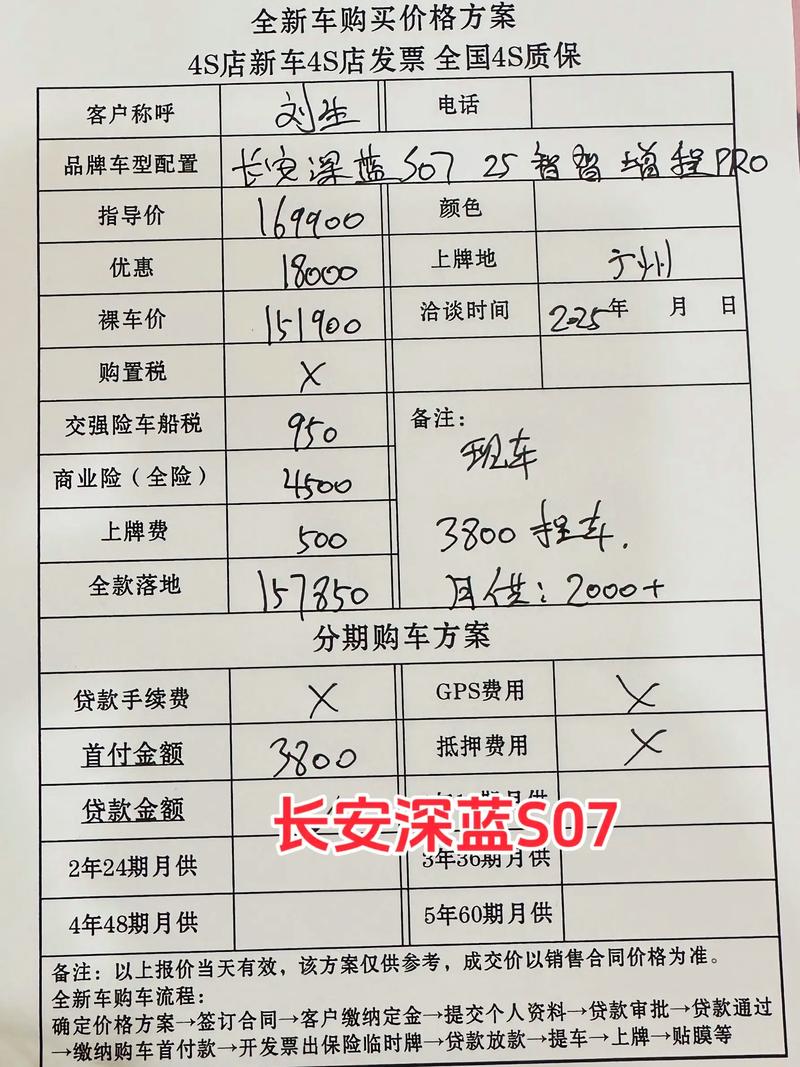 全新车购买价格方案
4S店新车4S店发票 全国4S质保
客户称呼 刘生 电话
品牌车型配置 长安深蓝S07 25智智增程PRO
指导价 169900 颜色
优惠 18000 上牌地 广州
裸车价 151900 洽谈时间 2025年 月 日
购置税 X
交强险车船税 950 备注:
现车
商业险（全险） 4500
上牌费 500 3800提车.
全款落地 157850 月供：2000+
分期购车方案
贷款手续费 X GPS费用 X
首付金额 3800 抵押费用 X
贷款金额 月供
长安深蓝S07
2年24期月供 3年36期月供
4年48期月供 5年60期月供
备注：以上报价当天有效，该方案仅供参考，成交价以销售合同价格为准。
全新车购车流程：
确定价格方案→签订合同→客户缴纳定金→提交个人资料→贷款审批→贷款通过
→缴纳购车首付款→开发票出保险临时牌→贷款放款→提车→上牌→贴膜等